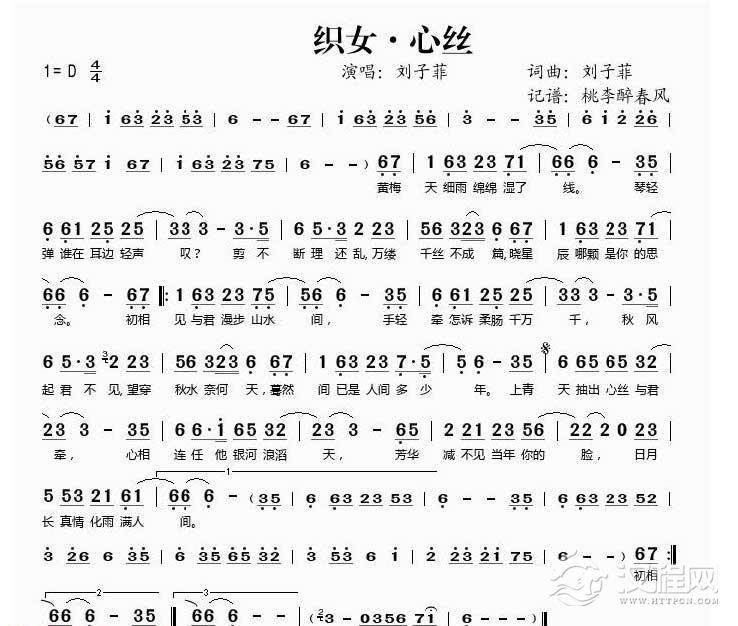 织女·心丝
1=D 4/4 演唱：刘子菲 词曲：刘子菲
记谱：桃李醉春风
(67 | i 63 23 53 | 6 - - 67 | i 63 23 56 | 3 - - 35 | 6 i 2 26 |
56 57 i 67 | i 63 23 75 | 6 - - ) 67 | 1 63 23 71 | 66 6 - 35 |
黄梅 天 细雨 绵绵 湿了 线。 琴轻
6 61 25 25 | 33 3 - 3·5 | 6 5·3 2 22 | 56 323 6 67 | 1 63 23 71 |
弹 谁在 耳边 轻声 叹？ 剪 不 断 理 还 乱,万缕 千丝 不成 篇,晓星 辰 哪颗 是你 的思
66 6 - 67 |: 1 63 23 75 | 56 6 - 35 | 6 61 25 25 | 33 3 - 3·5 |
念。 初相 见 与君 漫步 山水 间， 手轻 牵 怎诉 柔肠 千万 千， 秋 风
6 5·3 2 23 | 56 323 6 67 | 1 63 23 7·5 | 6 - - 35 | 6 65 65 32 |
起 君 不 见,望穿 秋水 奈何 天,蓦然 间 已是 人间 多 少 年。 上青 天 抽出 心丝 与君
23 3 - 35 | 6 6·i 65 35 | 23 3 - 35 | 2 21 23 56 | 22 20 23 |
牵， 心相 连 任 他 银河 浪滔 天， 芳华 减 不见 当年 你的 脸， 日月
1
5 53 21 61 | 66 6 - (35 | 6 63 23 35 | 6 - - 35 | 6 63 23 52 |
长 真情 化雨 满人 间。
3 26 6 35 | 6 65 65 52 | 353 6 i | 2 23 21 75 | 6 - - ) 67 :|
初相
2 3
66 6 - 35 | 66 6 - - | 3 - 0356 7i | 6 - - - |
汉程网
WWW.HTTPCN.COM